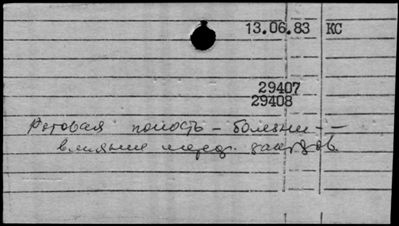 13.06.83 КС
29407
29408
Ротовая полость - болезни -
влияние